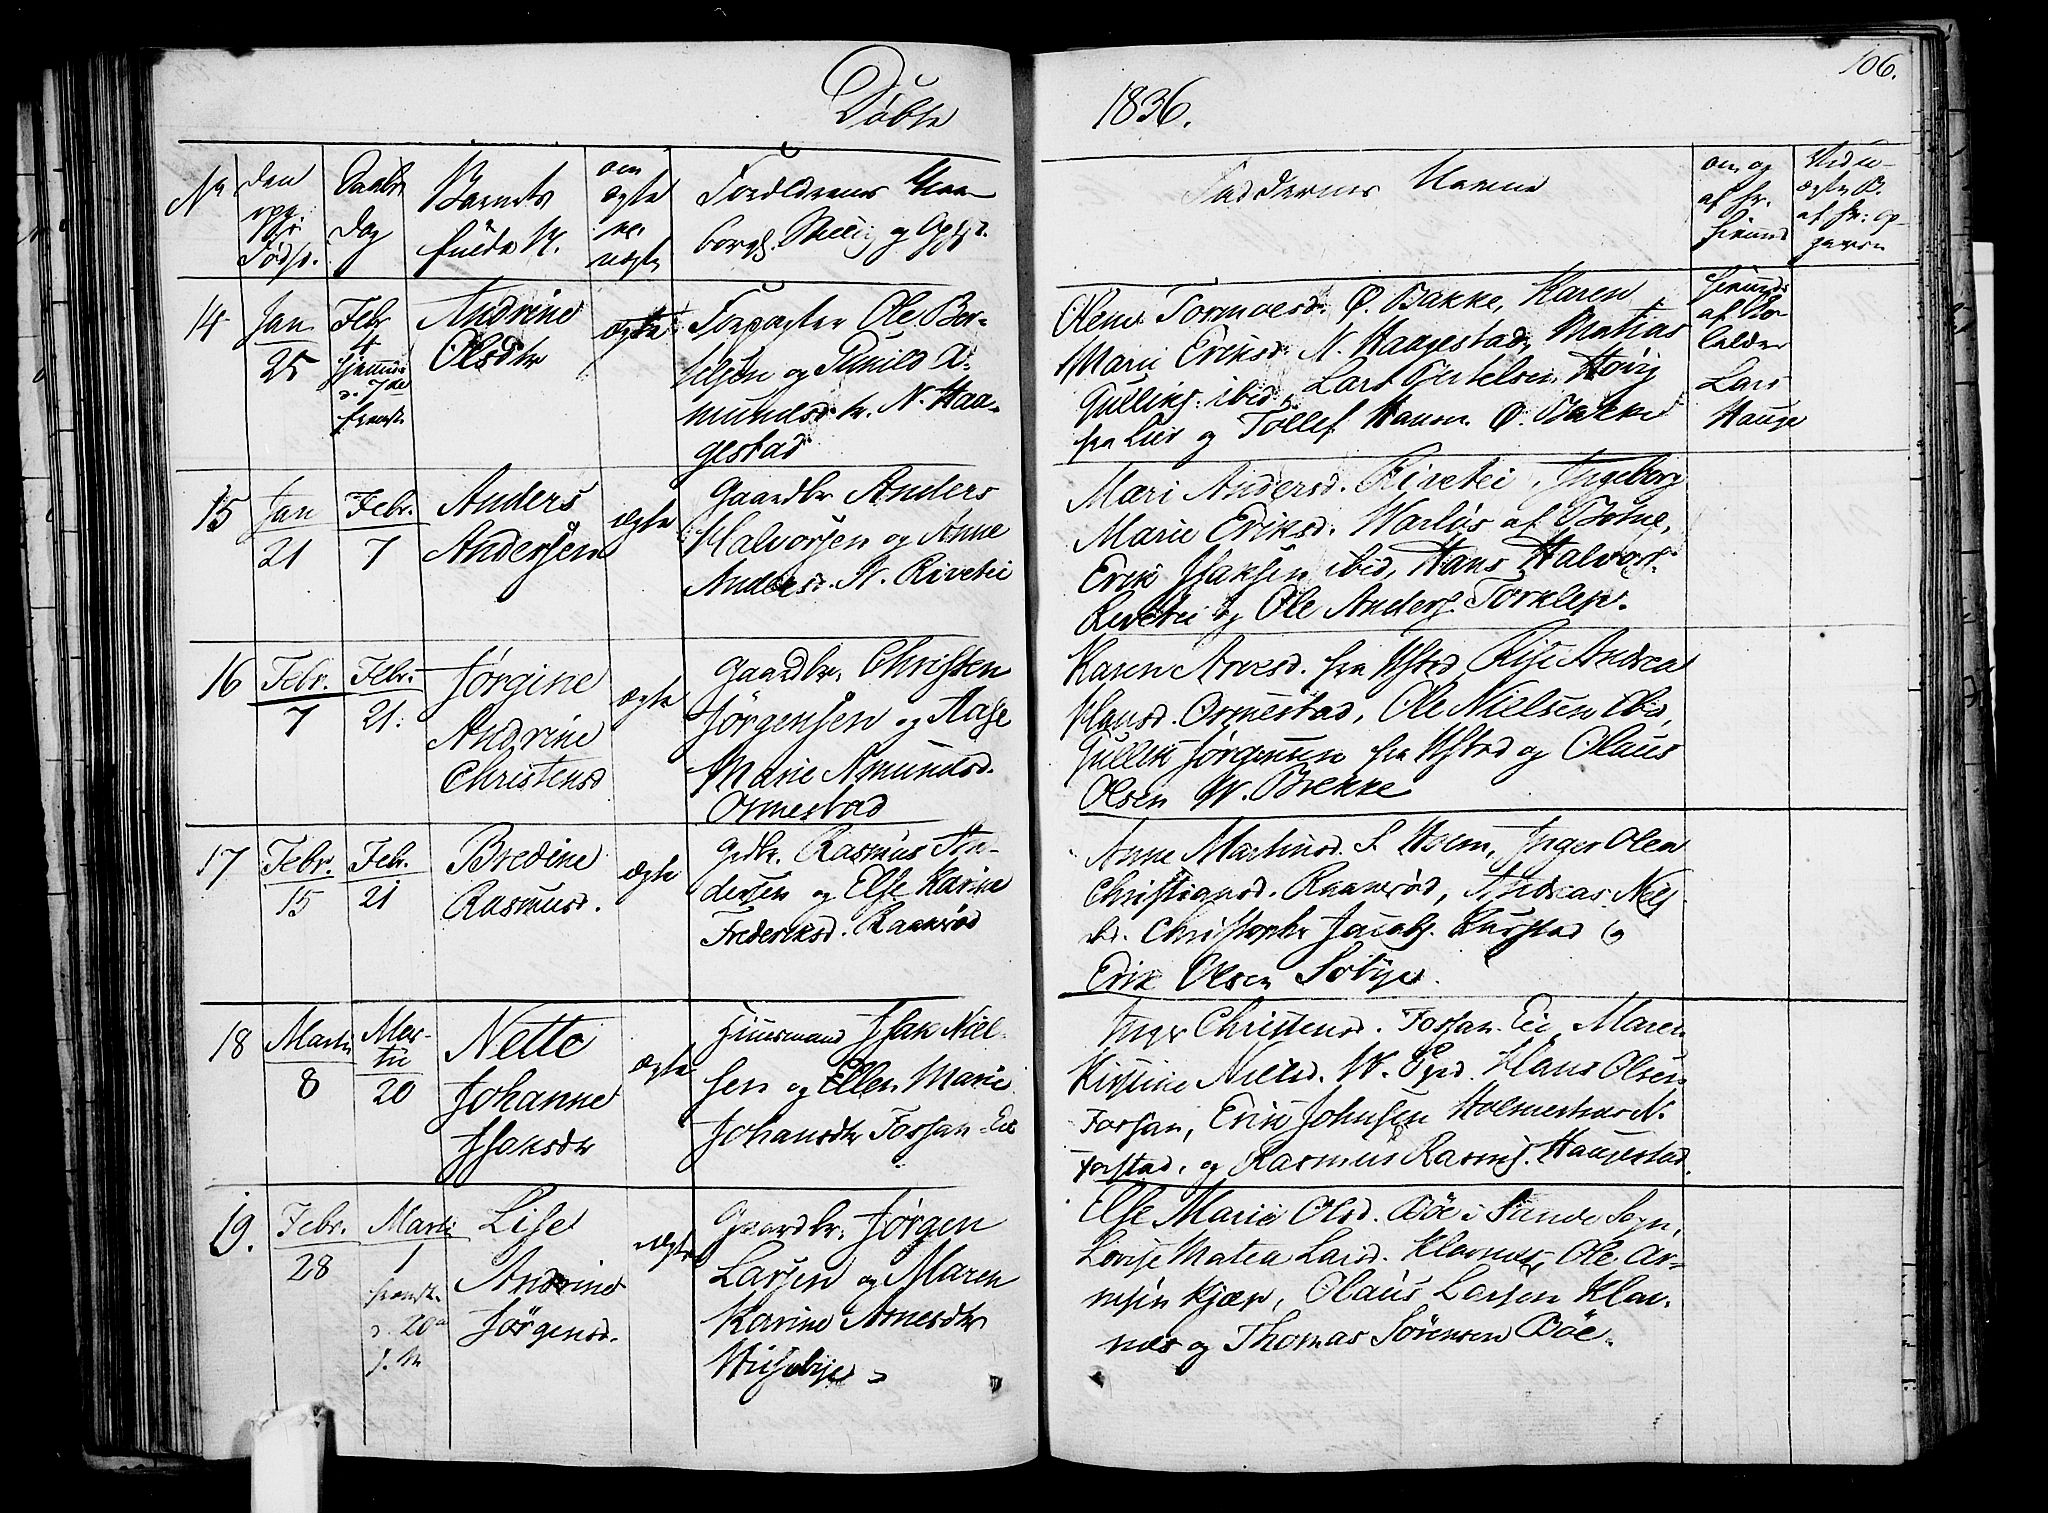 106.
Døbte
1836.
No
den
Fødsl.
Daabs
dag
Barnets
fulde N.
om
ægte
uægte
Forældrenes Navn
borgl. Stilling og
Faddernes Navne
om og
af hv.
hiemmed
14
Jan
25
Febr.
4
hjemmed.
d. 7de
Andrine
Olsdtr
ægte
Forpagter Ole Ber-
telsen og Gunild A-
mundsdtr. N. Haa-
gestad
Olene Tormoesd. Ø. Bakke, Karen
Marie Eriksd. N. Haagestad, Matias
Gulliks. ibid, Lars Bertelsen Høvig
fra Lier og Tollef Hansen Ø. Bakke
hjemmed.
af
Lars
Hauge
15
Jan
21
Febr.
7
Anders
Andersen
ægte
Gaardbr. Anders
Halvorsen og Anne
Andersd. N. Rivetei
Mari Andersd. Rivetei, Ingeborg
Marie Eriksd. af Botne,
Erik Isaksen ibid, Hans Halvors.
Rivetei og Ole Anders.
16
Febr.
7
Febr.
21.
Jørgine
Andrine
Christensd
ægte
Gaardbr. Christen
Jørgensen og Aase
Marie Amundsd.
Ormestad
Karen fra Andrea
Hansd. Ormestad, Ole Nielsen ibid,
Gullik Jørgensen fra og Olaus
Olsen N. Brekke
17
Febr.
15
Feb.
21
Bredine
Rasmusd.
ægte
Gdbr. Rasmus An-
dersen og Else Karine
Frederiksd. Raanerød
Anne Martinsd. S. Inger Olea
Christiansd. Raanerød, Andreas Niels
ibd. Christopher Jacobs. og
Erik Olsen Solbye.
18
Martii
8
Mar-
tii
20
Nette
Johanne
Isaksdtr
ægte
Huusmand Isak Niel-
sen og Ellen Marie
Johansdtr Fossan-Eie
Inger Christensd. Fossan-Eie, Maren
Kirstine Nielsd. Hans Olsen
Fossan, Erik Johnsen Holmestrand.
og Rasmus Rasmus. Haugestad.
19.
Febr.
28
Martii
1
d. 20de
s. M
Lise
Andrine
Jørgensd.
ægte
Gaardbr. Jørgen
Larsen og Maren
Karine Arnesdtr
Husebye
Else Marie Olsd. Bøe i Sande Sogn,
Lovise Matea Larsd. Klavnes, Ole Ar-
nesen Kjær, Olaus Larsen Klav-
nes og Thomas Sørensen Bøe.